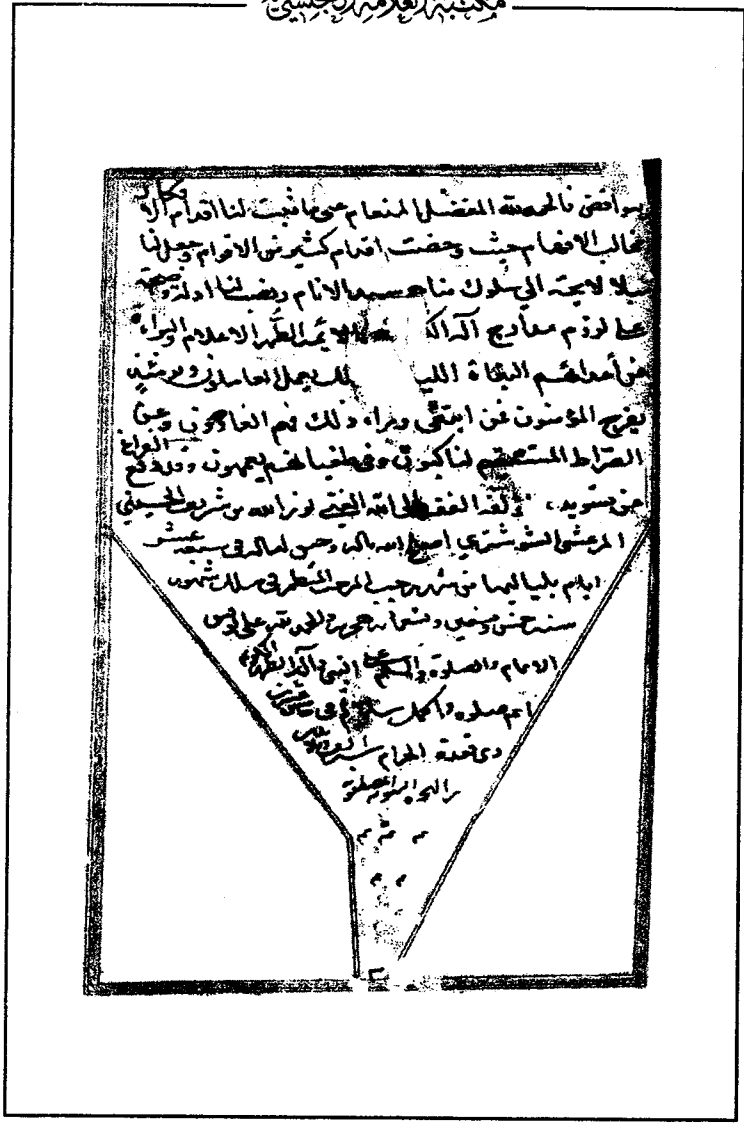 مكتبة العلامة المجلسي
فالحمد لله المفضل المنعام على ما ثبت لنا اقدام
الافهام حيث دحضت اقدام كثير من الاقوام وجعل لنا
الى سلوك مناهج سيد الانام ونصب لنا ادلة
على لزوم معارج آله الائمة الطهر الاعلام والبراءة
عن أعدائهم اللئام لمثل ذلك يعمل العاملون ويومئذ
يفرح المؤمنون فمن ابتغى وراء ذلك فهم العادون وعن
الصراط المستقيم لناكبون وفي طغيانهم يعمهون وقد وقع الفراغ
عن تسويده مؤلفه الفقير الى الله الغني نور الله بن شريف الحسيني
المرعشي الشوشتري اصلح الله باله وحسن في سبعة عشر
ايام بلياليها من شهر رجب المرجب المنتظم في سلك شهور
سنة خمس وتسعين وتسعمائة هجرية الحمد لله على
الاتمام والصلوة والسلام على النبي وآله الطهر
اتم صلوة واكمل سلام
ذي قعدة الحرام